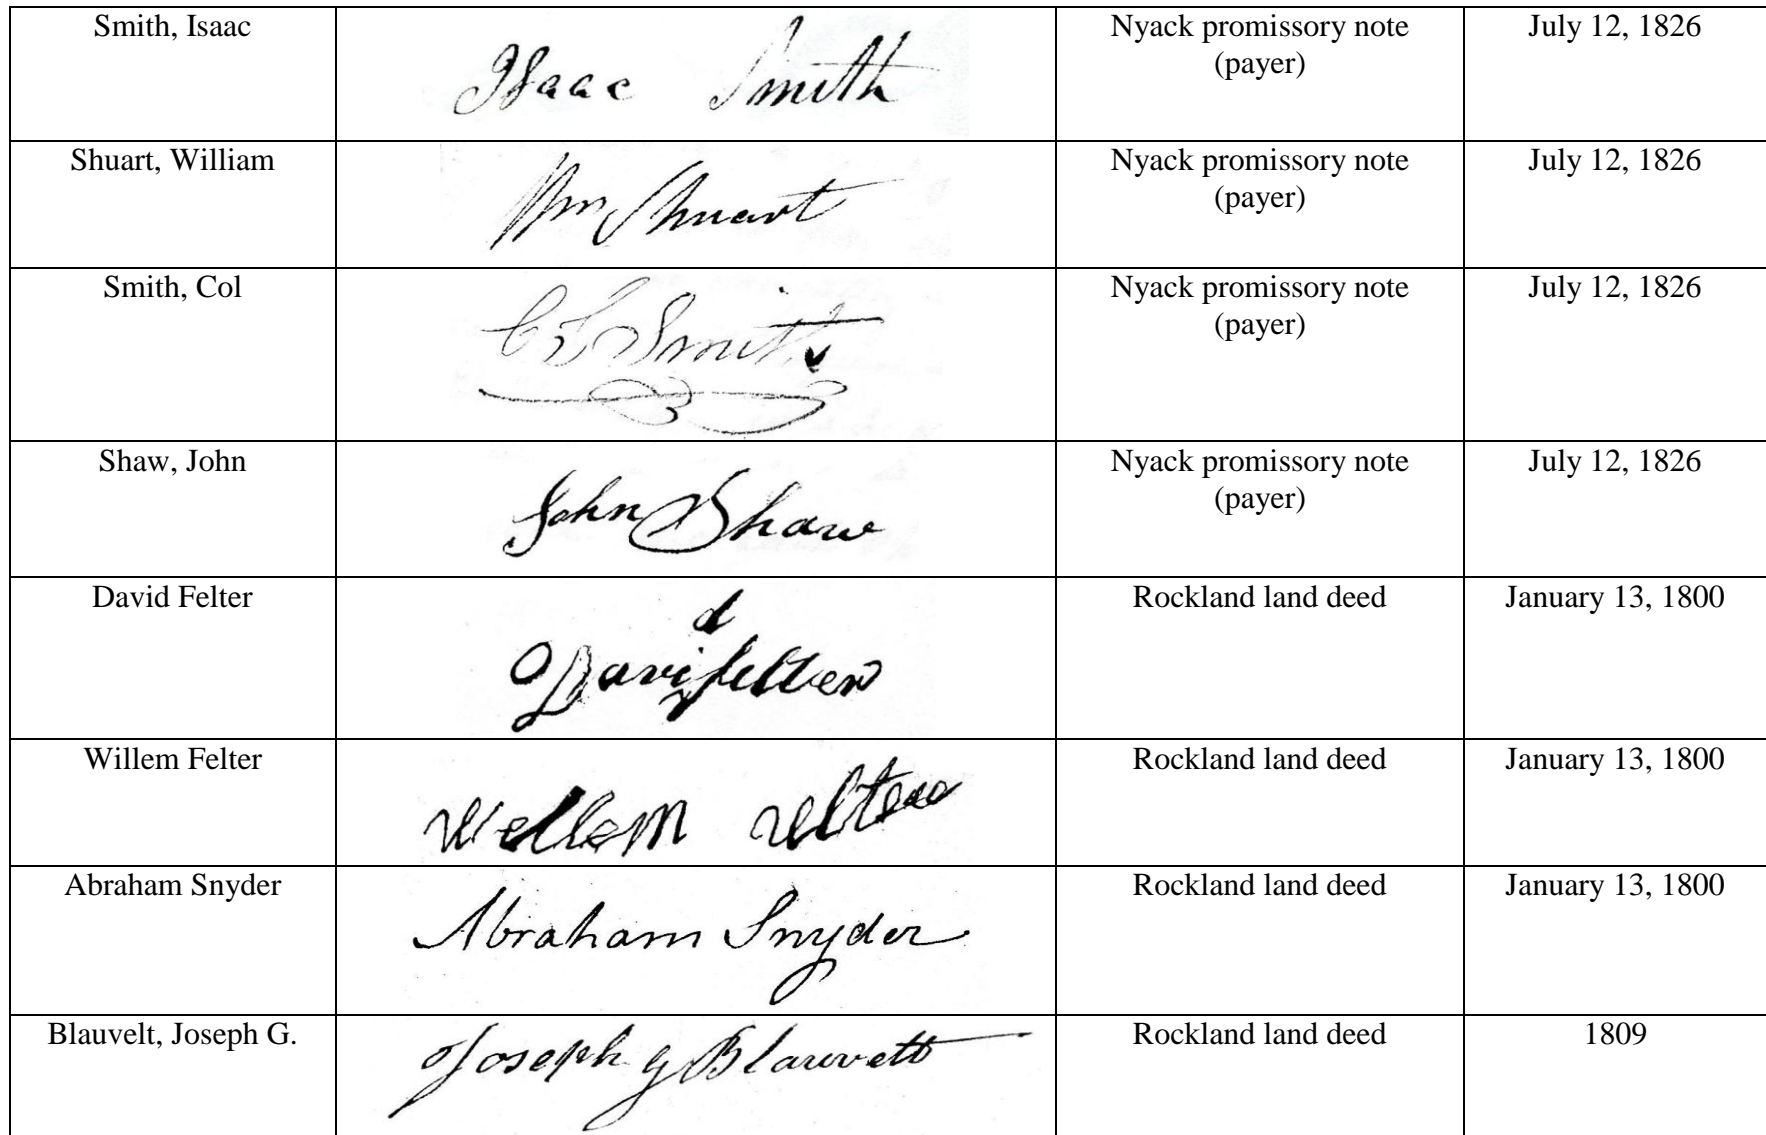 Smith, Isaac
Isaac Smith
Nyack promissory note
(payer)
July 12, 1826
Shuart, William
Wm Shuart
Nyack promissory note
(payer)
July 12, 1826
Smith, Col
Smith
Nyack promissory note
(payer)
July 12, 1826
Shaw, John
John Shaw
Nyack promissory note
(payer)
July 12, 1826
David Felter
d
Davi felter
Rockland land deed
January 13, 1800
Willem Felter
Wellem
Rockland land deed
January 13, 1800
Abraham Snyder
Abraham Snyder
Rockland land deed
January 13, 1800
Blauvelt, Joseph G.
Joseph G Blauvelt
Rockland land deed
1809